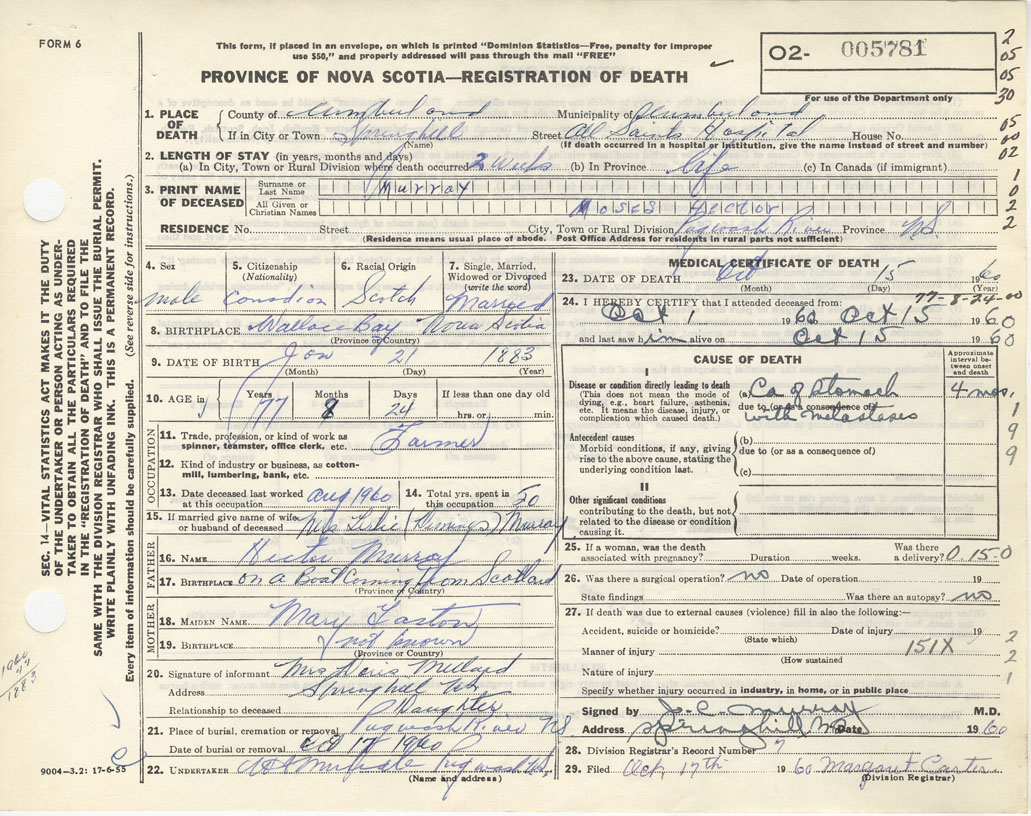 FORM 6
This form, if placed in an envelope, on which is printed "Dominion Statistics—Free, penalty for improper
use $50," and properly addressed will pass through the mail "FREE"
PROVINCE OF NOVA SCOTIA—REGISTRATION OF DEATH
O2- 005781
For use of the Department only
2
05
05
30
05
00
02
1
0
2
2
2
SEC. 14—VITAL STATISTICS ACT MAKES IT THE DUTY
OF THE UNDERTAKER OR PERSON ACTING AS UNDER-
TAKER TO OBTAIN ALL THE PARTICULARS REQUIRED
IN THE "REGISTRATION OF DEATH" AND TO FILE THE
SAME WITH THE DIVISION REGISTRAR WHO SHALL ISSUE THE BURIAL PERMIT.
WRITE PLAINLY WITH UNFADING INK. THIS IS A PERMANENT RECORD.
Every item of information should be carefully supplied. (See reverse side for instructions.)
1. PLACE OF DEATH County of Cumberland Municipality of Cumberland
If in City or Town Springhill Street All Saints Hospital House No.
(Name) (If death occurred in a hospital or institution, give the name instead of street and number)
2. LENGTH OF STAY (in years, months and days)
(a) In City, Town or Rural Division where death occurred 2 Weeks (b) In Province Life (c) In Canada (if immigrant)
3. PRINT NAME OF DECEASED Surname or Last Name Murray
All Given or Christian Names Moses Hector
RESIDENCE No. Street City, Town or Rural Division Pugwash River Province N.S.
(Residence means usual place of abode. Post Office Address for residents in rural parts not sufficient)
4. Sex male
5. Citizenship (Nationality) Canadian
6. Racial Origin Scotch
7. Single, Married, Widowed or Divorced (write the word) Married
8. BIRTHPLACE Wallace Bay Nova Scotia
(Province or Country)
9. DATE OF BIRTH Jan 21 1883
(Month) (Day) (Year)
10. AGE in Years 77 Months 8 Days 24 If less than one day old hrs. or min.
OCCUPATION
11. Trade, profession, or kind of work as spinner, teamster, office clerk, etc. Farmer
12. Kind of industry or business, as cotton-mill, lumbering, bank, etc.
13. Date deceased last worked at this occupation Aug 1960
14. Total yrs. spent in this occupation 50
15. If married give name of wife or husband of deceased Mrs Leslie (Fleming) Murray
FATHER
16. NAME Hector Murray
17. BIRTHPLACE on a Boat Coming from Scotland
(Province or Country)
MOTHER
18. MAIDEN NAME Mary Easton
19. BIRTHPLACE (not known)
(Province or Country)
20. Signature of informant Mrs Doris Millard
Address Springhill NS
Relationship to deceased Daughter
21. Place of burial, cremation or removal Pugwash River NS
Date of burial or removal Oct 17 1960
22. UNDERTAKER Pugwash NS
(Name and address)
9004—3.2: 17-6-55
1960
77
1883
MEDICAL CERTIFICATE OF DEATH
23. DATE OF DEATH Oct 15 1960
(Month) (Day) (Year)
77-8-24-00
24. I HEREBY CERTIFY that I attended deceased from:
Oct 1 1960 Oct 15 1960
and last saw him alive on Oct 15 1960
CAUSE OF DEATH
Approximate interval between onset and death
I
Disease or condition directly leading to death
(This does not mean the mode of dying, e.g., heart failure, asthenia, etc. It means the disease, injury, or complication which caused death.)
(a) Ca of Stomach 4 mos.
due to (or as a consequence of)
with metastases
Antecedent causes
Morbid conditions, if any, giving rise to the above cause, stating the underlying condition last.
(b)
due to (or as a consequence of)
(c)
II
Other significant conditions contributing to the death, but not related to the disease or condition causing it.
1
9
9
25. If a woman, was the death associated with pregnancy? Duration weeks. Was there a delivery? 0.15.0
26. Was there a surgical operation? no Date of operation 19
State findings Was there an autopsy? no
27. If death was due to external causes (violence) fill in also the following:—
Accident, suicide or homicide? Date of injury 19
(State which)
Manner of injury 151X
(How sustained
Nature of injury
2
2
1
Specify whether injury occurred in industry, in home, or in public place
Signed by J. C. Murray M.D.
Address Springhill NS Date 1960
28. Division Registrar's Record Number
29. Filed Oct 17th 1960 Margaret Carter
(Division Registrar)